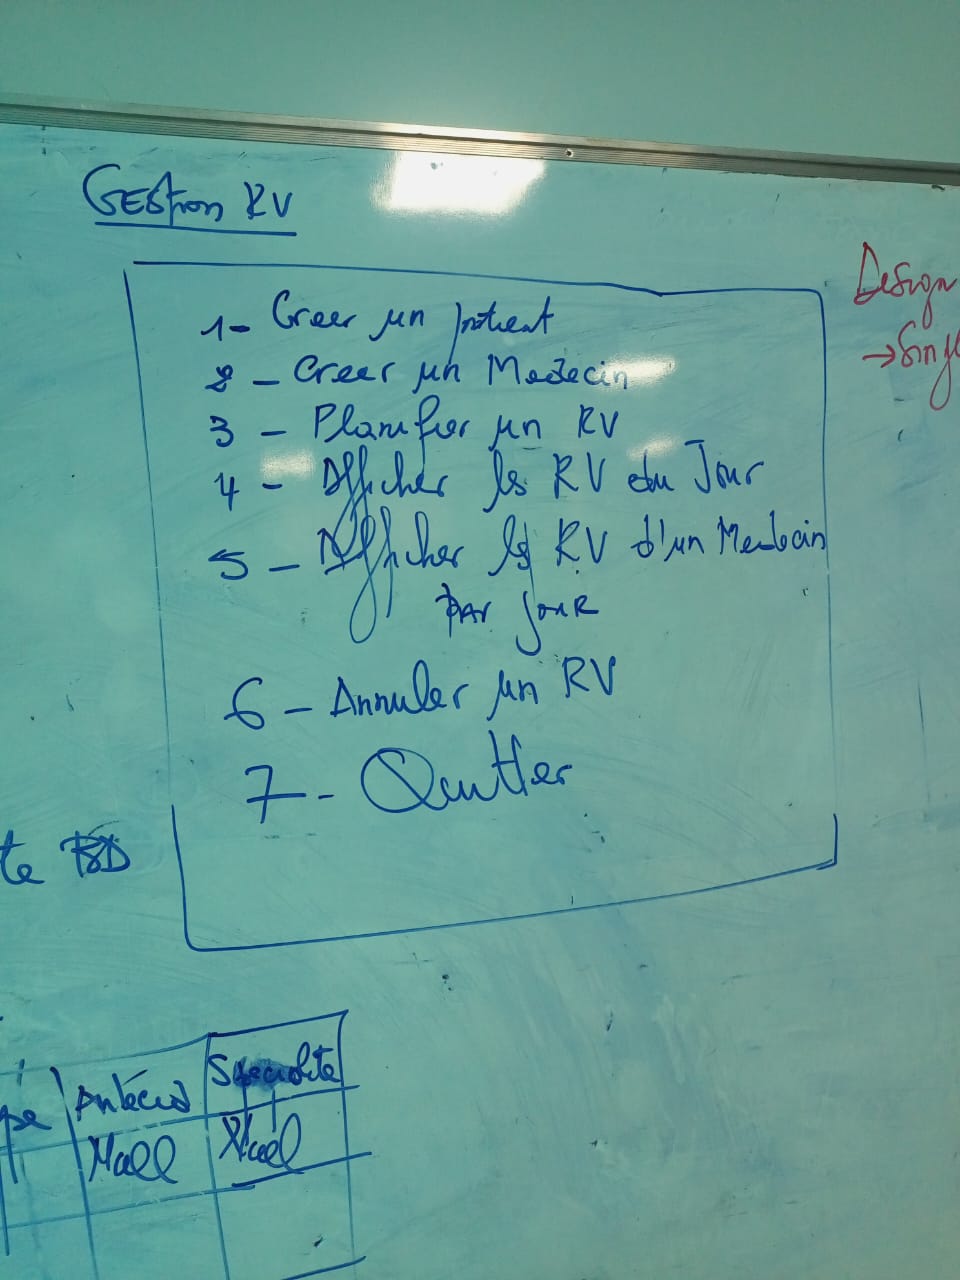 GEStion RV
1- Creer un patient
2 - Creer un Medecin
3 - Planifier un RV
4 - Afficher les RV du Jour
5 - Afficher les RV d'un Medecin
PAR JOUR
6 - Annuler un RV
7 - Quitter
Design
→ Singl
te BD
pe Antécéd Specialite
Null Null